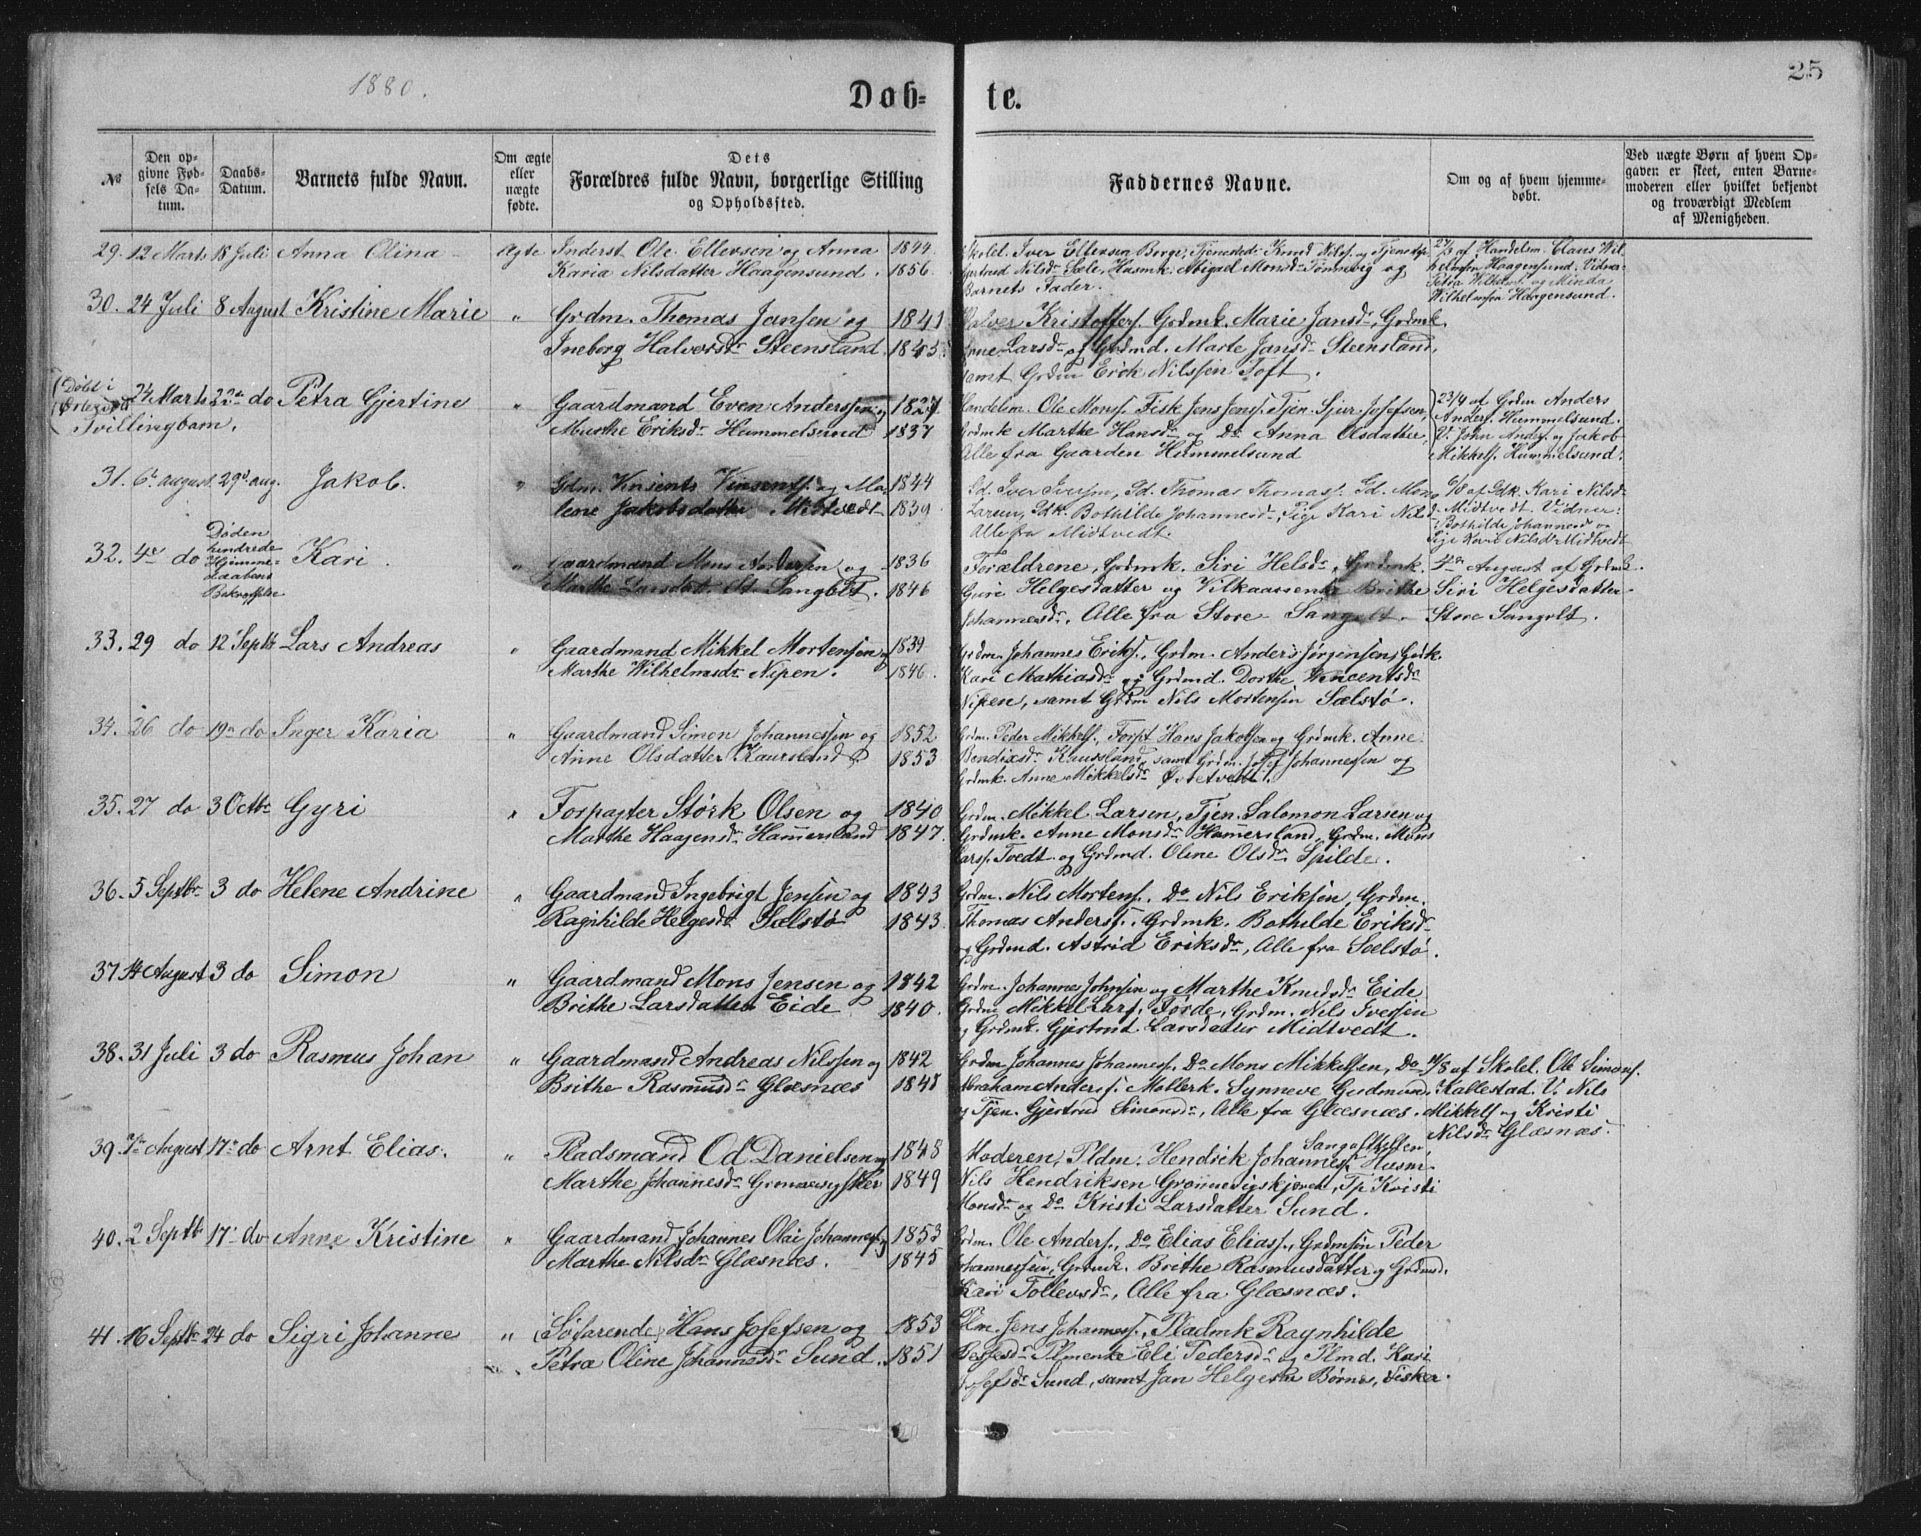 1880.
25
Døb-te.
№
Den opgivne Fødsels Datum.
Daabs-Datum.
Barnets fulde Navn.
Om ægte eller uægte fødte.
Dets Forældres fulde Navn, borgerlige Stilling og Opholdssted.
Faddernes Navne.
Om og af hvem hjemmedøbt.
Ved uægte Børn af hvem Opgaven er skeet, enten Barnemoderen eller hvilket bekjendt og troværdigt Medlem af Menigheden.
29. 12 Marts 18 Juli Anna Olina Ægte Inderst Ole Ellevsen og Anna 1844
Karia Nilsdatter Haagensund. 1856
Skolel. Iver Ellevsen Borge, Knud Nils. og
Gjertrud Nilsd. Sæle, Husmk. Abigael Monsd. Tønnevig og
Barnets Fader.
27/3 af Handelsm. Claus Wil-
helmsen Haagensund. Vidner:
Petra Wilhelms. og Minda
Wilhelmsen Haagensund.
30. 24 Juli 8 August Kristine Marie " Grdm. Thomas Jansen og 1841
Ineborg Halversdr Steensland
Halver Kristoffers. Grdmk. Marie Jansdr, Grdmk.
Anne Larsdr og Grdmd. Marte Jansdr Steensland,
samt Grdm Erik Nilssen Toft.
(Døbt i
24 Marts 22de do Petra Gjertine " Gaardmand Even Anderssen og 1827
Tvillingbarn.
Marthe Eriksdr Hummelsund 1837
Handelm. Ole Mons. Fisk Jens Jens. Tjen. Sjur Josefsen,
Grdmk Marthe Hansdr og Do Anna Olsdatter,
Alle fra Gaarden Hummelsund
23/4 af Grdm Anders
Anders. Hummelsund.
V. John Anders. og Jakob
Mikkels. Hummelsund.
31. 6te august 29de aug. Jakob. " Gdm. Vinsents Vinsents. og Ma- 1844
lene Jakobsdatter Midtvedt 1839
Gd. Iver Iversen, Gd. Thomas Thomass. Gd. Mons
Larsen, Gdk. Bothilde Johannesdr, Pige Kari Nilsd.
Alle fra Midtvedt.
6/8 af Gdk. Kari Nilsd.
Midtvedt. Vidner:
Bothilde Johannesd og
Pige Kari Nilsdr Midtvedt
32. 4de do Døden
hindrede
Hjemme-
daabens
Bekræftelse
Kari. " Gaardmand Mons Andersen og 1836
Marthe Larsdatt. St. Sangolt. 1846
Forældrene, Grdmk. Siri Helsdr, Grdmk.
Guri Helgesdatter og Vilkaarsenke Brithe
Johannesdr, Alle fra Store Sangolt.
4de August af Grdmk.
Siri Helgesdatter
Store Sangolt.
33. 29 do 12 Septb Lars Andreas " Gaardmand Mikkel Mortensen og 1839
Marthe Wilhelmsdr Nipen. 1846.
Grdm. Johannes Eriks., Grdm. Anders Jørgensen, Grdk.
Kari Mathiasdr og Grdmd. Dorthe Vincentsdr
Nipen, samt Grdm Nils Mortensen Sælstø.
34. 26 do 19de do Inger Karia " Gaardmand Simon Johannessen og 1852
Anne Olsdatter Kaursland 1853
Grdm. Peder Mikkels., Forpt Hans Jakobsen og Grdmk. Anne
Bendixsdr Kausland, samt Grdm. Josef Johannessen og
Grdmk. Anne Mikkelsdr Øvretvedt.
35. 27 do 3 Octbr Gyri " Forpagter Størk Olsen og 1840
Marthe Haagensdr Hammersland 1847.
Grdm. Mikkel Larsen, Tjen. Salomon Larsen og
Grdmk. Anne Monsdr Hamersland, Grdm. Mons
Larss. Tvedt og Grdmd. Oline Olsdr Spilde.
36. 5 Septbr 3 do Helene Andrine " Gaardmand Ingebrigt Jensen og 1843
Ragnhilde Helgesdr Sælstø 1843
Grdm. Nils Mortens. Do Nils Eriksen, Grdm.
Thomas Anders., Grdmk. Bothilde Eriksdr
og Grdmd. Astrid Eriksdr, Alle fra Sælstø.
37. 14 August 3 do Simon " Gaardmand Mons Jensen og 1842
Brithe Larsdatter Eide 1840.
Grdm. Johannes Johnsen og Marthe Knudsdr Eide
Grdm Mikkel Lars. Førde, Grdm. Nils Iversen
og Grdmk. Gjertrud Larsdatter Midtvedt.
38. 31 Juli 3 do Rasmus Johan " Gaardmand Andreas Nilssen og 1842
Brithe Rasmusdr Glæsnæs
Grdm Johannes Johannes. Do Mons Mikkelsen, Do
Abraham Anders. Møllerk. Synneve Gudmund.
og Tjen. Gjertrud Simonsdr, Alle fra Glæsnæs.
af Skolel. Ole Simons.
Kallestad. V. Nils
Mikkels og Kristi
Nilsdr Glæsnæs.
39. 7de August 17de do Arnt Elias. " Pladsmand Od Danielsen og 1848
Marthe Johannesdr 1849
Moderen, Pldm. Hendrik Johannes. Husm.
Nils Hendriksen Grønnevigskjæret, Tp Kristi
Monsdr og Do Kristi Larsdatter Sund.
40. 2 Septbr 17de do Anne Kristine " Gaardmand Johannes Olai Johannes. og 1853
Marthe Nilsdr Glæsnæs. 1845
Grdm. Ole Anders., Do Elias Elias., Grdmsøn Peder
Johannessen, Grdmk. Brithe Rasmusdatter og Grdmd.
Kari Tollevsdr, Alle fra Glæsnæs.
41. 16 Septbr 24 do Sigri Johanne " Søfarende Hans Josefsen og 1853
Petra Oline Johannesdr Sund. 1851
Plm. Jens Johannes., Pladmk Ragnhilde
Plmenke Eli Pedersdr og Plmd. Kari
Josefsdr Sund, samt Jan Helgesen Børnes, Fisker.